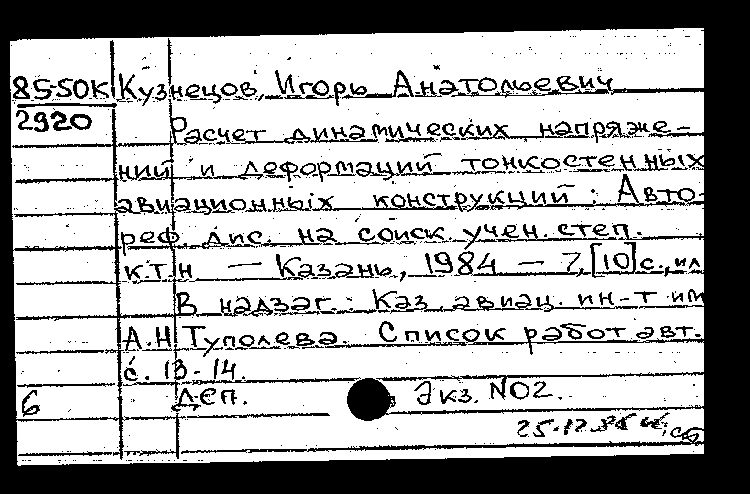 85-50К Кузнецов, Игорь Анатольевич
2920 Расчет динамических напряже-
ний и деформаций тонкостенных
авиационных конструкций : Авто-
реф. дис. на соиск. учен. степ.
к.т.н — Казань, 1984 — 7, [10] с., ил
В надзаг.: Каз. авиац. ин-т им
А.Н Туполева. Список работ авт.
с. 13-14.
6 Деп. Экз. NO2.
25.12.